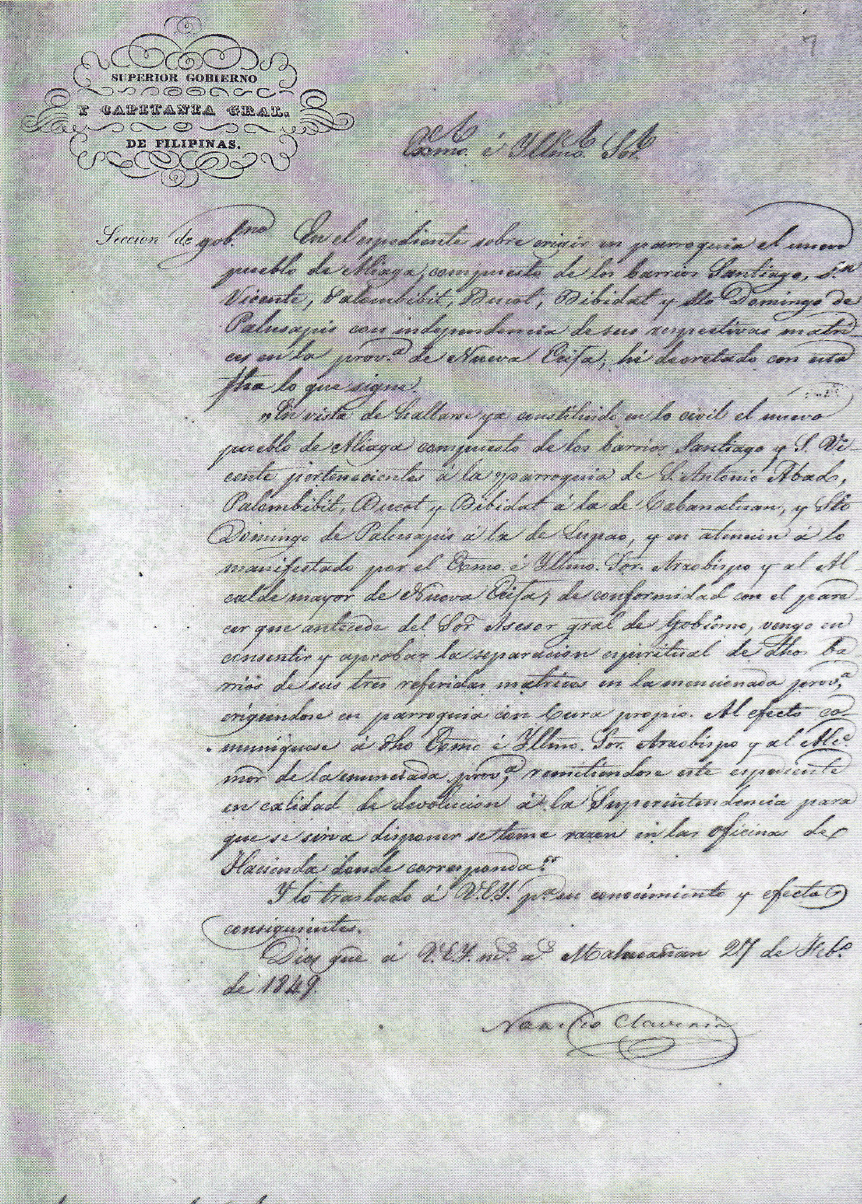 7
SUPERIOR GOBIERNO
Y CAPITANIA GRAL.
DE FILIPINAS.
Exmo. é Yllmo. Sor.
Seccion de gobno
En el espediente sobre erigir en parroquia el nuevo
pueblo de Aliaga, compuesto de los barrios Santiago, Sn
Vicente, Palombibit, Bucot, Bibidat y Sto Domingo de
Palusapis con independencia de sus respectivas matri-
ces en la prov.a de Nueva Ecija, hé decretado con esta
fha lo que sigue.
"En vista de hallarse ya constituido en lo civil el nuevo
pueblo de Aliaga compuesto de los barrios Santiago y S. Vi-
cente pertenecientes á la parroquia de S. Antonio Abad,
Palombibit, Bucot y Bibidat á la de Cabanatuan, y Sto
Domingo de Palusapis á la de Lupao, y en atencion á lo
manifestado por el Exmo. é Yllmo. Sor. Arzobispo y al Al-
calde mayor de Nueva Ecija, de conformidad con el pare-
cer que antecede del Sor Asesor gral de Gobierno, vengo en
consentir y aprobar la separacion espiritual de dhos ba-
rrios de sus tres referidas matrices en la mencionada prov.a
erigiendose en parroquia con Cura propio. Al efecto co-
muniquese á dho Exmo é Yllmo. Sor. Arzobispo y al Alc.e
mor de la enunciada prov.a, remitiendose este espediente
en calidad de devolucion á la Superintendencia para
que se sirva disponer se tome razon en las oficinas de
Hacienda donde corresponda."
Y lo traslado á V.E.Y. pa su conocimiento y efectos
consiguientes.
Dios gue á V.E.Y. ms. as. Malacañan 27 de Feb.o
de 1849
Narciso Claveria